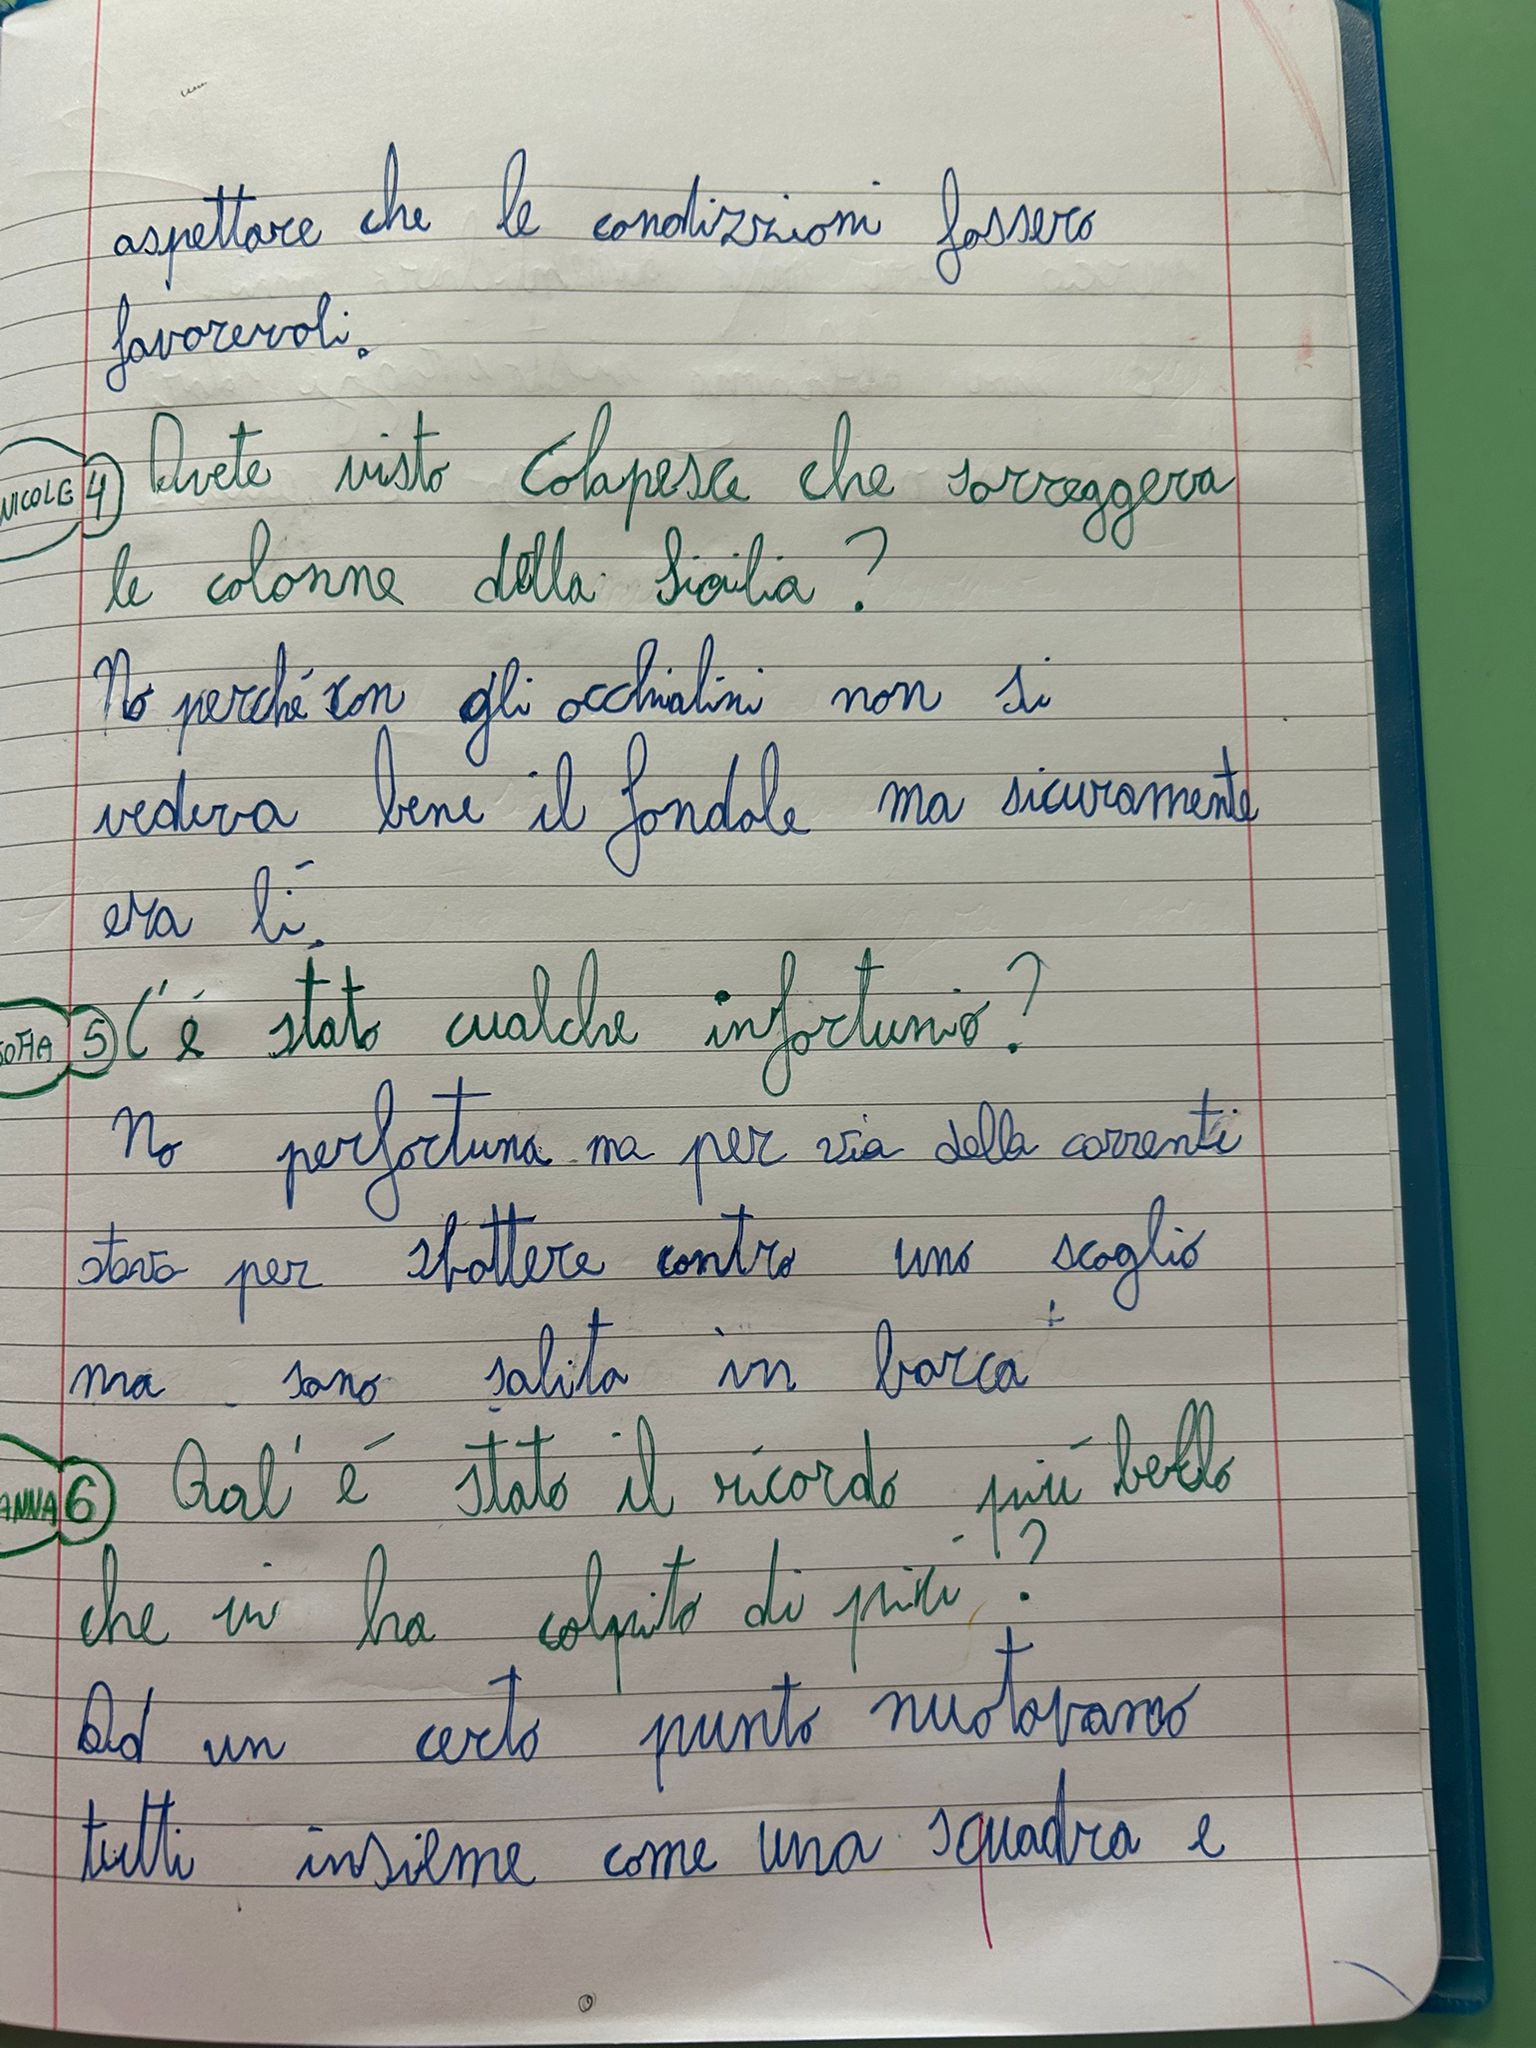 aspettare che le condizzioni fossero
favorevoli.
NICOLE 4 Avete visto Colapesce che sorreggeva
le colonne della Sicilia?
No perché con gli occhialini non si
vedeva bene il fondale ma sicuramente
era lí.
SOFIA 5 C'é stato cualche infortunio?
No perfortuna ma per via della correnti
stavo per sbattere contro uno scoglio
ma sono salita in barca
ANNA 6 Qual'é stato il ricordo piú bello
che vi ha colpito di piú?
Ad un certo punto nuotavamo
tutti insieme come una squadra e